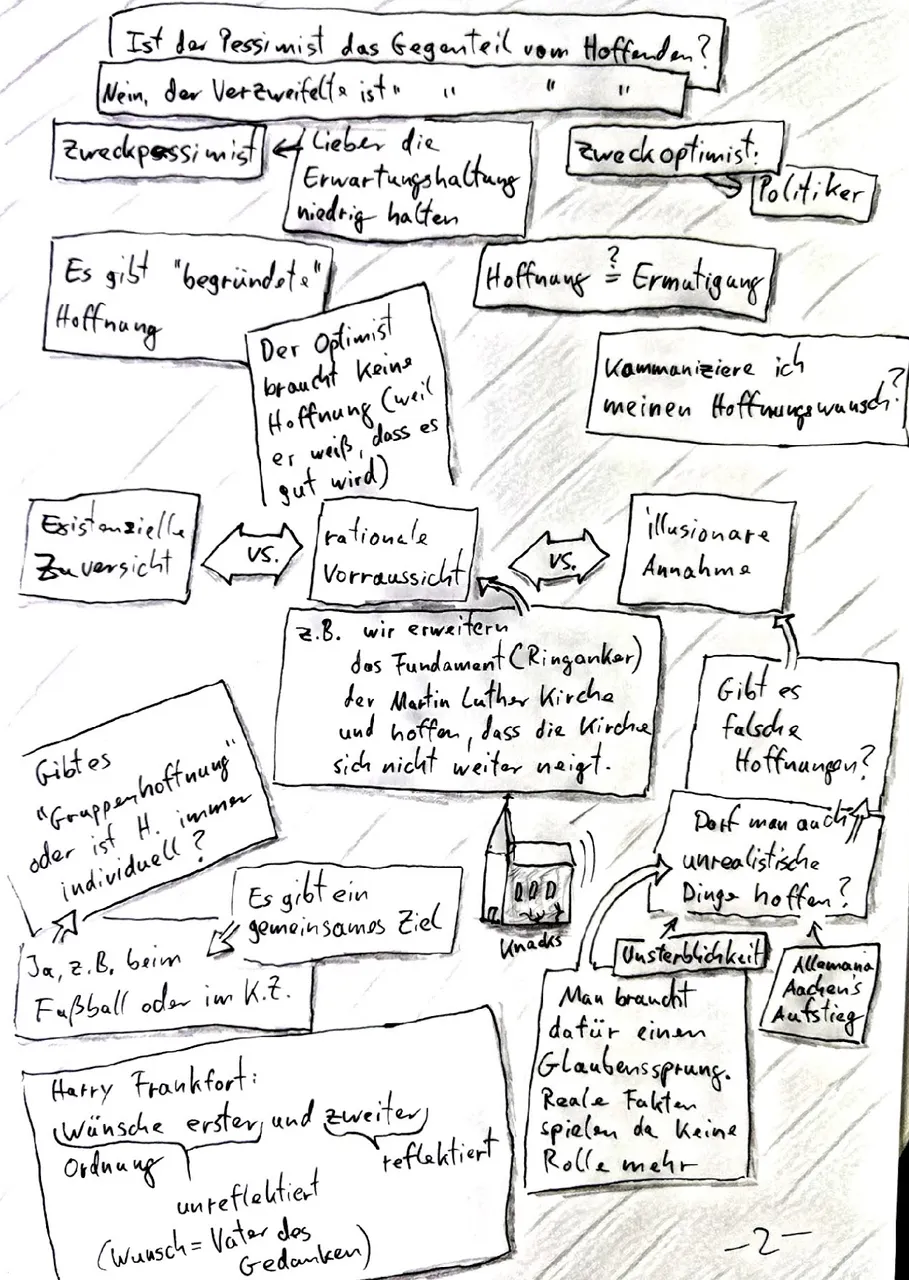 Ist der Pessimist das Gegenteil vom Hoffenden?
Nein, der Verzweifelte ist " " " "
Zweckpessimist
Lieber die
Erwartungshaltung
niedrig halten
Zweckoptimist:
Politiker
Es gibt "begründete"
Hoffnung
Hoffnung ?= Ermutigung
Der Optimist
braucht keine
Hoffnung (weil
er weiß, dass es
gut wird)
Kommaniziere ich
meinen Hoffnungswunsch?
Existenzielle
Zuversicht
vs.
rationale
Vorraussicht
vs.
illusionare
Annahme
z.B. wir erweitern
das Fundament (Ringanker)
der Martin Luther Kirche
und hoffen, dass die Kirche
sich nicht weiter neigt.
Gibt es
falsche
Hoffnungen?
Gibt es
"Gruppenhoffnung"
oder ist H. immer
individuell?
Darf man auch
unrealistische
Dinge hoffen?
Es gibt ein
gemeinsames Ziel
Knacks
Ja, z.B. beim
Fußball oder im K.Z.
Unsterblichkeit
Allemania
Aachens
Aufstieg
Man braucht
dafür einen
Glaubenssprung.
Reale Fakten
spielen da keine
Rolle mehr
Harry Frankfort:
Wünsche erster und zweiter
Ordnung
reflektiert
unreflektiert
(Wunsch = Vater des
Gedanken)
-2-